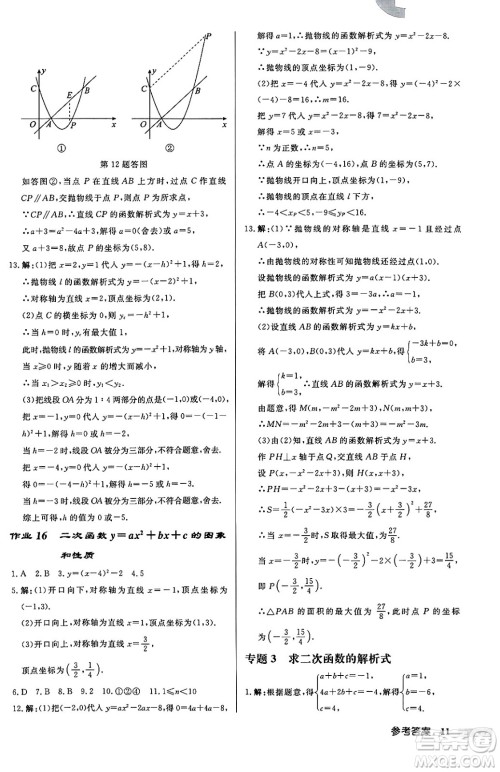 y
P
C
E
B
O
A
x
①
y
P
C
B
O
A
x
②
第12题答图
如答图②,当点 P 在直线 AB 上方时,过点 C 作
CP∥AB,交抛物线于点 P,则点 P 为所求点,
∵CP∥AB,直线 CP 的函数解析式为 y=x+3,
∴a+3=a²-4a+3,解得 a=0(舍去)或 a=5.
又 a+3=8,故点 P 的坐标为(5,8).
13.解:(1)把(2,0)代入 y=-(x-h)²,得 h=2,
∴抛物线 l 的函数解析式为 y=-(x-2)²,
∴对称轴为直线 x=2,顶点坐标为(2,0).
(2)点 C 的横坐标为 0,则 y_C=-h²,
当 h=0 时,y_C 有最大值 0,
此时,抛物线 l 的函数解析式为 y=-x²,对称轴为 y 轴,
当 x≥0 时,y 随着 x 的增大而减小,
∴当 x₁>x₂≥0 时,y₁<y₂.
(3)把线段 OA 分为 1∶4 两部分的点是(-1,0)或(-4,0).
把 x=-1,y=0 代入 y=-(x-h)²,得 h=-1,
把 x=-4,y=0 代入 y=-(x-h)²,得 h=-4.
当 h=-1 时,线段 OA 被分为三部分,不符合题意,舍去.
当 h=-4 时,线段 OA 被分为三部分,不符合题意,舍去.
综上可知,h 的值不存在.
作业 16 二次函数 y=ax²+bx+c 的图象
和性质
1.A 2.B 3.y=(x-4)²-2 4.5
5.解:(1)开口向下,对称轴为直线 x=1,顶点坐标为
(1,-3).
(2)开口向上,对称轴为直线 x=-1,顶点坐标为
(-1,3).
(3)开口向上,对称轴为直线 x=3/2,
顶点坐标为(3/2,-1/4).
6.D 7.D 8.B 9.2 10.①②④ 11.1≤n<10
12.解:(1)把(-2,0)代入 y=x²-2ax-8,得 4+4a-8=0,
解得 a=1,∴抛物线的函数解析式为 y=x²-2x-8.
∵y=x²-2x-8=(x-1)²-9,
∴抛物线的顶点坐标为(1,-9).
(2)把 x=-4 代入 y=x²-2x-8,得 y=(-4)²-2×
(-4)-8=16,∴m=16.
把 y=7 代入 y=x²-2x-8,得 7=x²-2x-8,
解得 x=5 或 x=-3,
∴n=5 或 n=-3.
∵n 为正数,∴n=5.
∴点 A 的坐标为(-4,16),点 B 的坐标为(5,7).
∵抛物线的开口向上,顶点坐标为(1,-9),
∴抛物线的顶点在 AB 下方,
∴-4<x_P<5,-9≤y_P<16.
13.解:(1)∵抛物线的对称轴是直线 x=-1 且经过点
A(-3,0),
∴由抛物线的对称性可知抛物线还经过点(1,0).
设抛物线的函数解析式为 y=a(x-1)(x+3),
把 B(0,3)代入,得 3=-3a,∴a=-1.
∴抛物线的函数解析式为 y=-x²-2x+3.
(2)设直线 AB 的函数解析式为 y=kx+b,
将 A(-3,0),B(0,3)代入 y=kx+b,得{-3k+b=0, b=3,
解得{k=1, b=3, ∴直线 AB 的函数解析式为 y=x+3.
由题意,得 M(m,-m²-2m+3),N(m,m+3),
∴MN=-m²-2m+3-(m+3)=-m²-3m.
(3)由(2)知,直线 AB 的函数解析式为 y=x+3,
作 PH⊥x 轴于点 H,交直线 AB 于点 G,
∴PH=-x²-2x+3,GH=x+3,
∴PG=-x²-2x+3-(x+3)=-x²-3x,
∴S=1/2(-x²-3x)×3=-3/2(x+3/2)²+27/8,
∴当 x=-3/2 时,S最大=27/8,
当 x=-3/2 时,y=-(-3/2)²-2×(-3/2)+3=15/4,
即 P(-3/2,15/4).
∴△PAB 的面积的最大值为27/8,此时点 P 的坐标
为(-3/2,15/4).
专题 3 求二次函数的解析式
1.解:根据题意,得{a+b+c=0, 4a+2b+c=3, c=4, 解得
参考答案 11